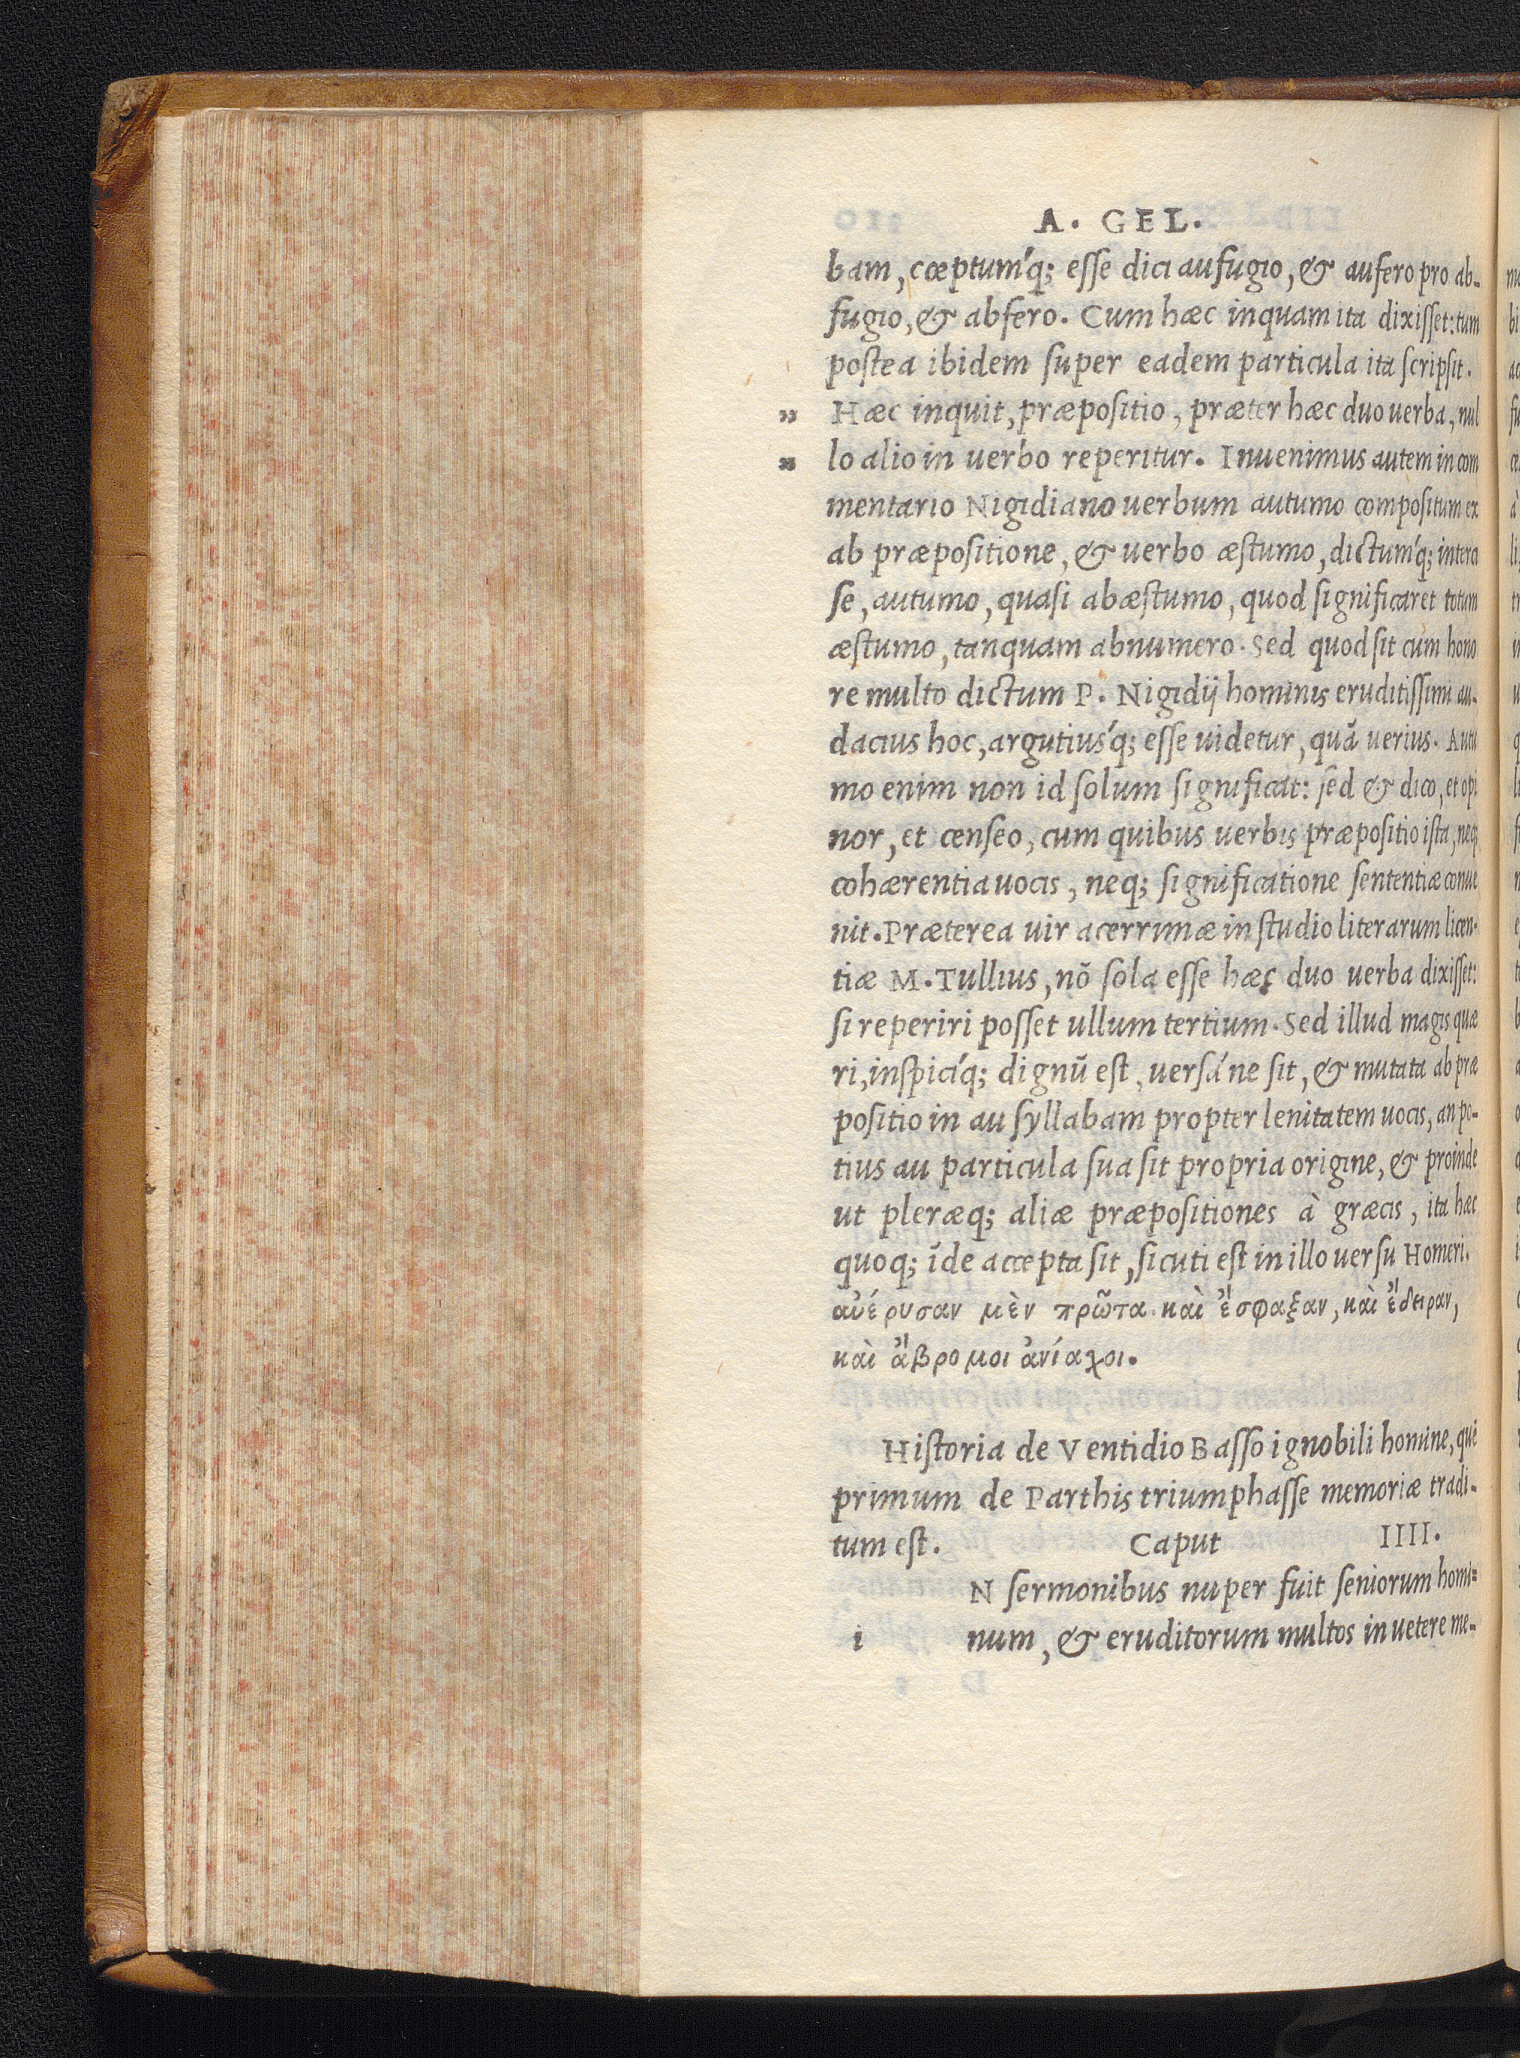 A. GEL.
bam, cœptum'q; esse dici aufugio, & aufero pro ab-
fugio, & abfero. Cum hæc inquam ita dixisset: tum
postea ibidem super eadem particula ita scripsit.
„ Hæc inquit, præpositio, præter hæc duo uerba, nul
„ lo alio in uerbo reperitur. Inuenimus autem in com
mentario Nigidiano uerbum autumo compositum ex
ab præpositione, & uerbo æstumo, dictum'q; interca
se, autumo, quasi abæstumo, quod significaret totum
æstumo, tanquam abnumero. Sed quod sit cum hono
re multo dictum P. Nigidij hominis eruditissimi au-
dacius hoc, argutius'q; esse uidetur, quã uerius. Autu
mo enim non id solum significat: sed & dico, et opi
nor, et censeo, cum quibus uerbis præpositio ista, neq;
cohærentia uocis, neq; significatione sententiæ conue
nit. Præterea uir acerrimæ in studio literarum licen-
tiæ M. Tullius, nõ sola esse hæc duo uerba dixisset:
si reperiri posset ullum tertium. Sed illud magis quæ
ri, inspici'q; dignũ est, uersá ne sit, & mutata ab præ
positio in au syllabam propter lenitatem uocis, an po-
tius au particula sua sit propria origine, & proinde
ut pleræq; aliæ præpositiones à græcis, ita hæc
quoq; ĩde accepta sit, sicuti est in illo uersu Homeri.
αὐέρυσαν μὲν πρῶτα καὶ ἔσφαξαν, καὶ ἔδειραν,
καὶ ἄβρομοι ἀνίαχοι.
Historia de Ventidio Basso ignobili homine, quẽ
primum de Parthis triumphasse memoriæ tradi-
tum est. Caput IIII.
N sermonibus nuper fuit seniorum homi-
i num, & eruditorum multos in uetere me-